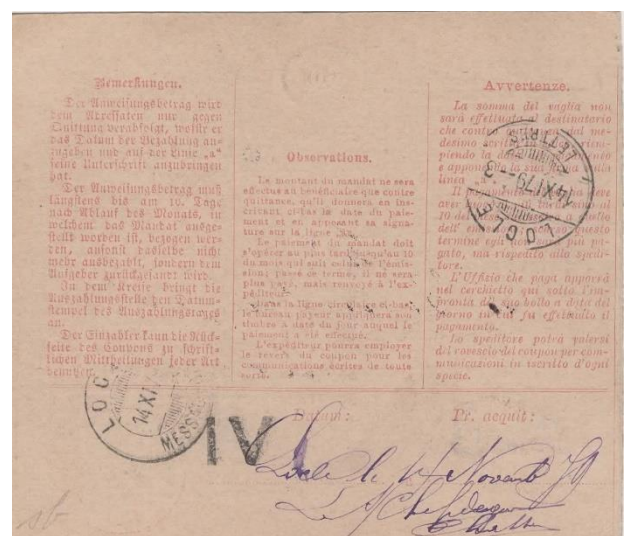 Bemerkungen.
Der Anweisungsbetrag wird
dem Adressaten nur gegen
Quittung verabfolgt, wofür er
das Datum der Bezahlung an-
zugeben und auf der Linie „a"
seine Unterschrift anzubringen
hat.
Der Anweisungsbetrag muß
längstens bis am 10. Tage
nach Ablauf des Monats, in
welchem das Mandat ausge-
stellt worden ist, bezogen wer-
den, ansonst dasselbe nicht
mehr ausbezahlt, sondern dem
Aufgeber zurückgesandt wird.
In dem Kreise bringt die
Auszahlungsstelle den Datum-
stempel des Auszahlungstages
an.
Der Einzahler kann die Rück-
seite des Coupons zu schrift-
lichen Mittheilungen jeder Art
benutzen.
Observations.
Le montant du mandat ne sera
effectué au bénéficiaire que contre
quittance, qu'il donnera en ins-
crivant ci-bas la date du paie-
ment et en apposant sa signa-
ture sur la ligne
Le paiement du mandat doit
s'opérer au plus tard jusqu'au 10
du mois qui suit celui de l'émis-
sion; passé ce terme, il ne sera
plus payé, mais renvoyé à l'ex-
péditeur.
Dans la ligne circulaire ci-bas
le bureau payeur apposera son
timbre à date du jour auquel le
paiement a été effectué.
L'expéditeur pourra employer
le revers du coupon pour les
communications écrites de toute
sorte.
Avvertenze.
La somma del vaglia non
sarà effettuata al destinatario
che contro
desimo
piendo la
e apponendo la
linea
Il
aver
10 del
dell'
termine
gato, ma rispedito allo spedi-
tore.
L'Uffizio che paga apporrà
nel cerchietto qui sotto l'im-
pronta del suo bollo a data del
giorno in cui fu effettuato il
pagamento.
Lo speditore potrà valersi
del rovescio del coupon per com-
municazioni in iscritto d'ogni
specie.
LOCLE
14 XI 79
LETTRES
LOC
14 XI 7
MESSAG
IV
Datum:
Pr. acquit:
Locle le 14 Novemb 79